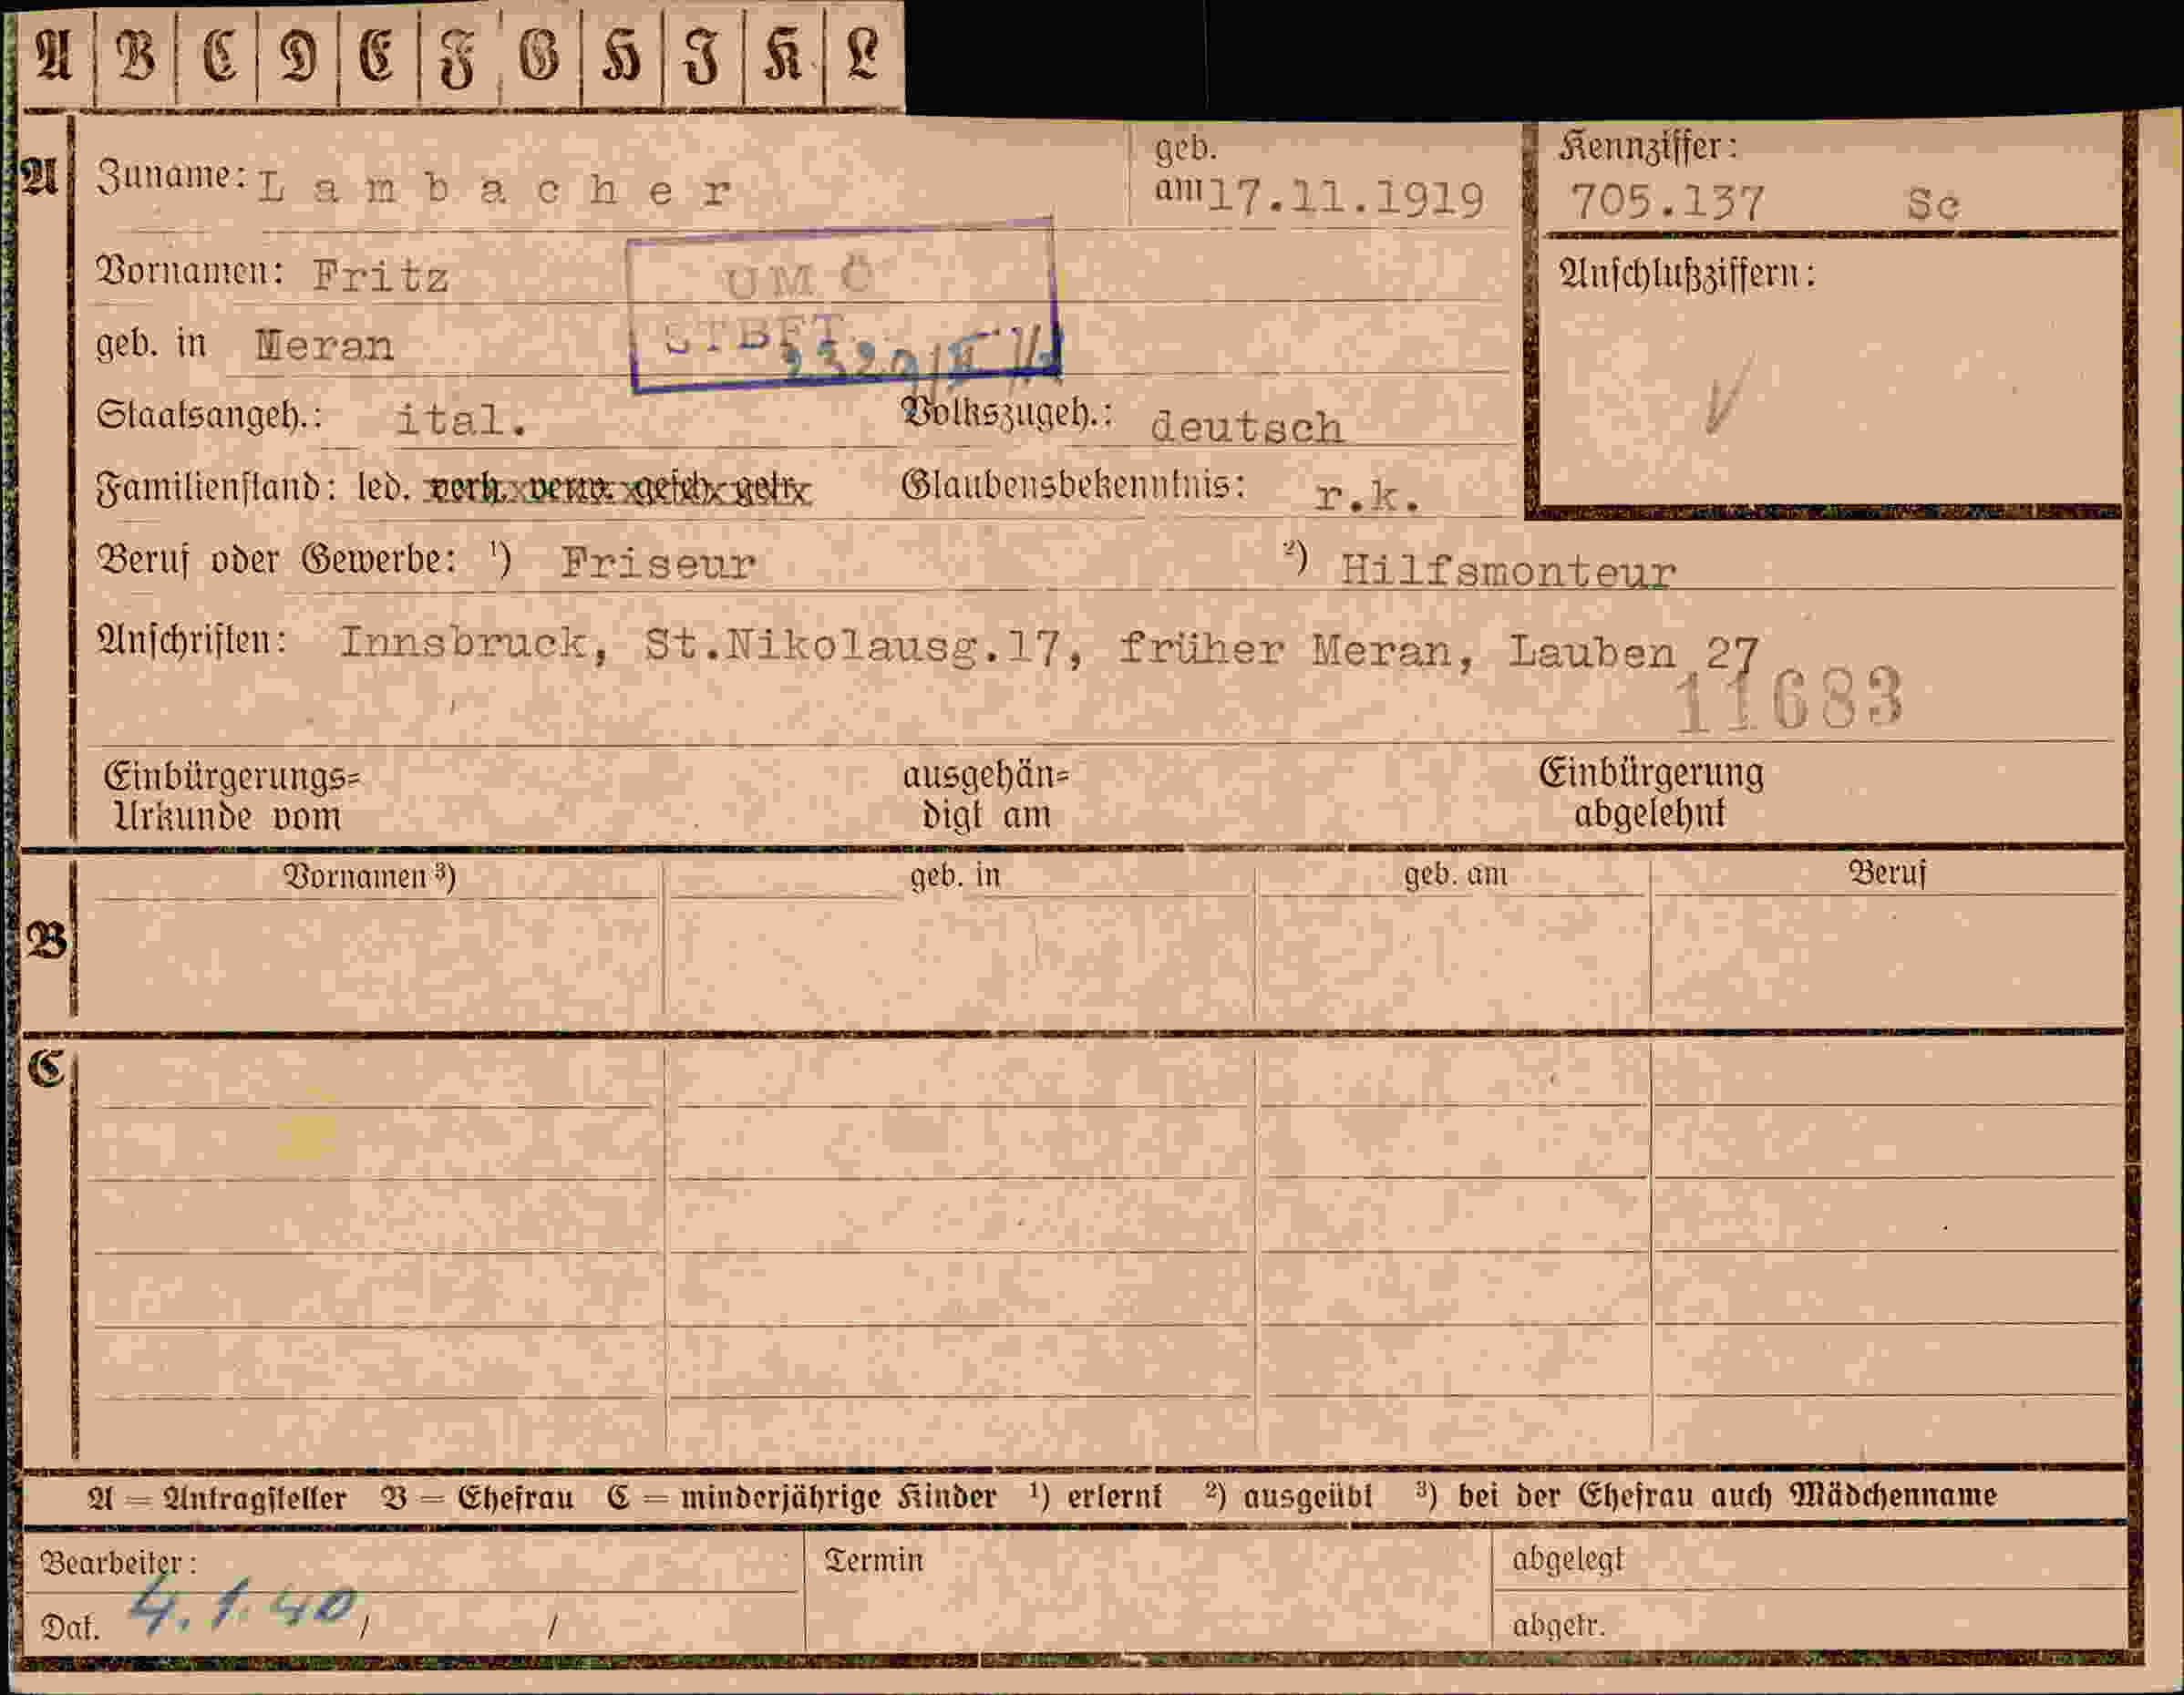 A B C D E F G H I K L
A Zuname: Lambacher geb. am 17.11.1919 Kennziffer: 705.137 Sc
Vornamen: Fritz UM Ö Anschlußziffern:
geb. in Meran STBFT
Staatsangeh.: ital. Volkszugeh.: deutsch
Familienstand: led. verh. verw. gesch. getr. Glaubensbekenntnis: r.k.
Beruf oder Gewerbe: ¹) Friseur ²) Hilfsmonteur
Anschriften: Innsbruck, St.Nikolausg.17, früher Meran, Lauben 27
11683
Einbürgerungs= ausgehän= Einbürgerung
Urkunde vom digt am abgelehnt
Vornamen ³) geb. in geb. am Beruf
B
C
A = Antragsteller B = Ehefrau C = minderjährige Kinder ¹) erlernt ²) ausgeübt ³) bei der Ehefrau auch Mädchenname
Bearbeiter: Termin abgelegt
Dat. 4.1.40 / / abgetr.